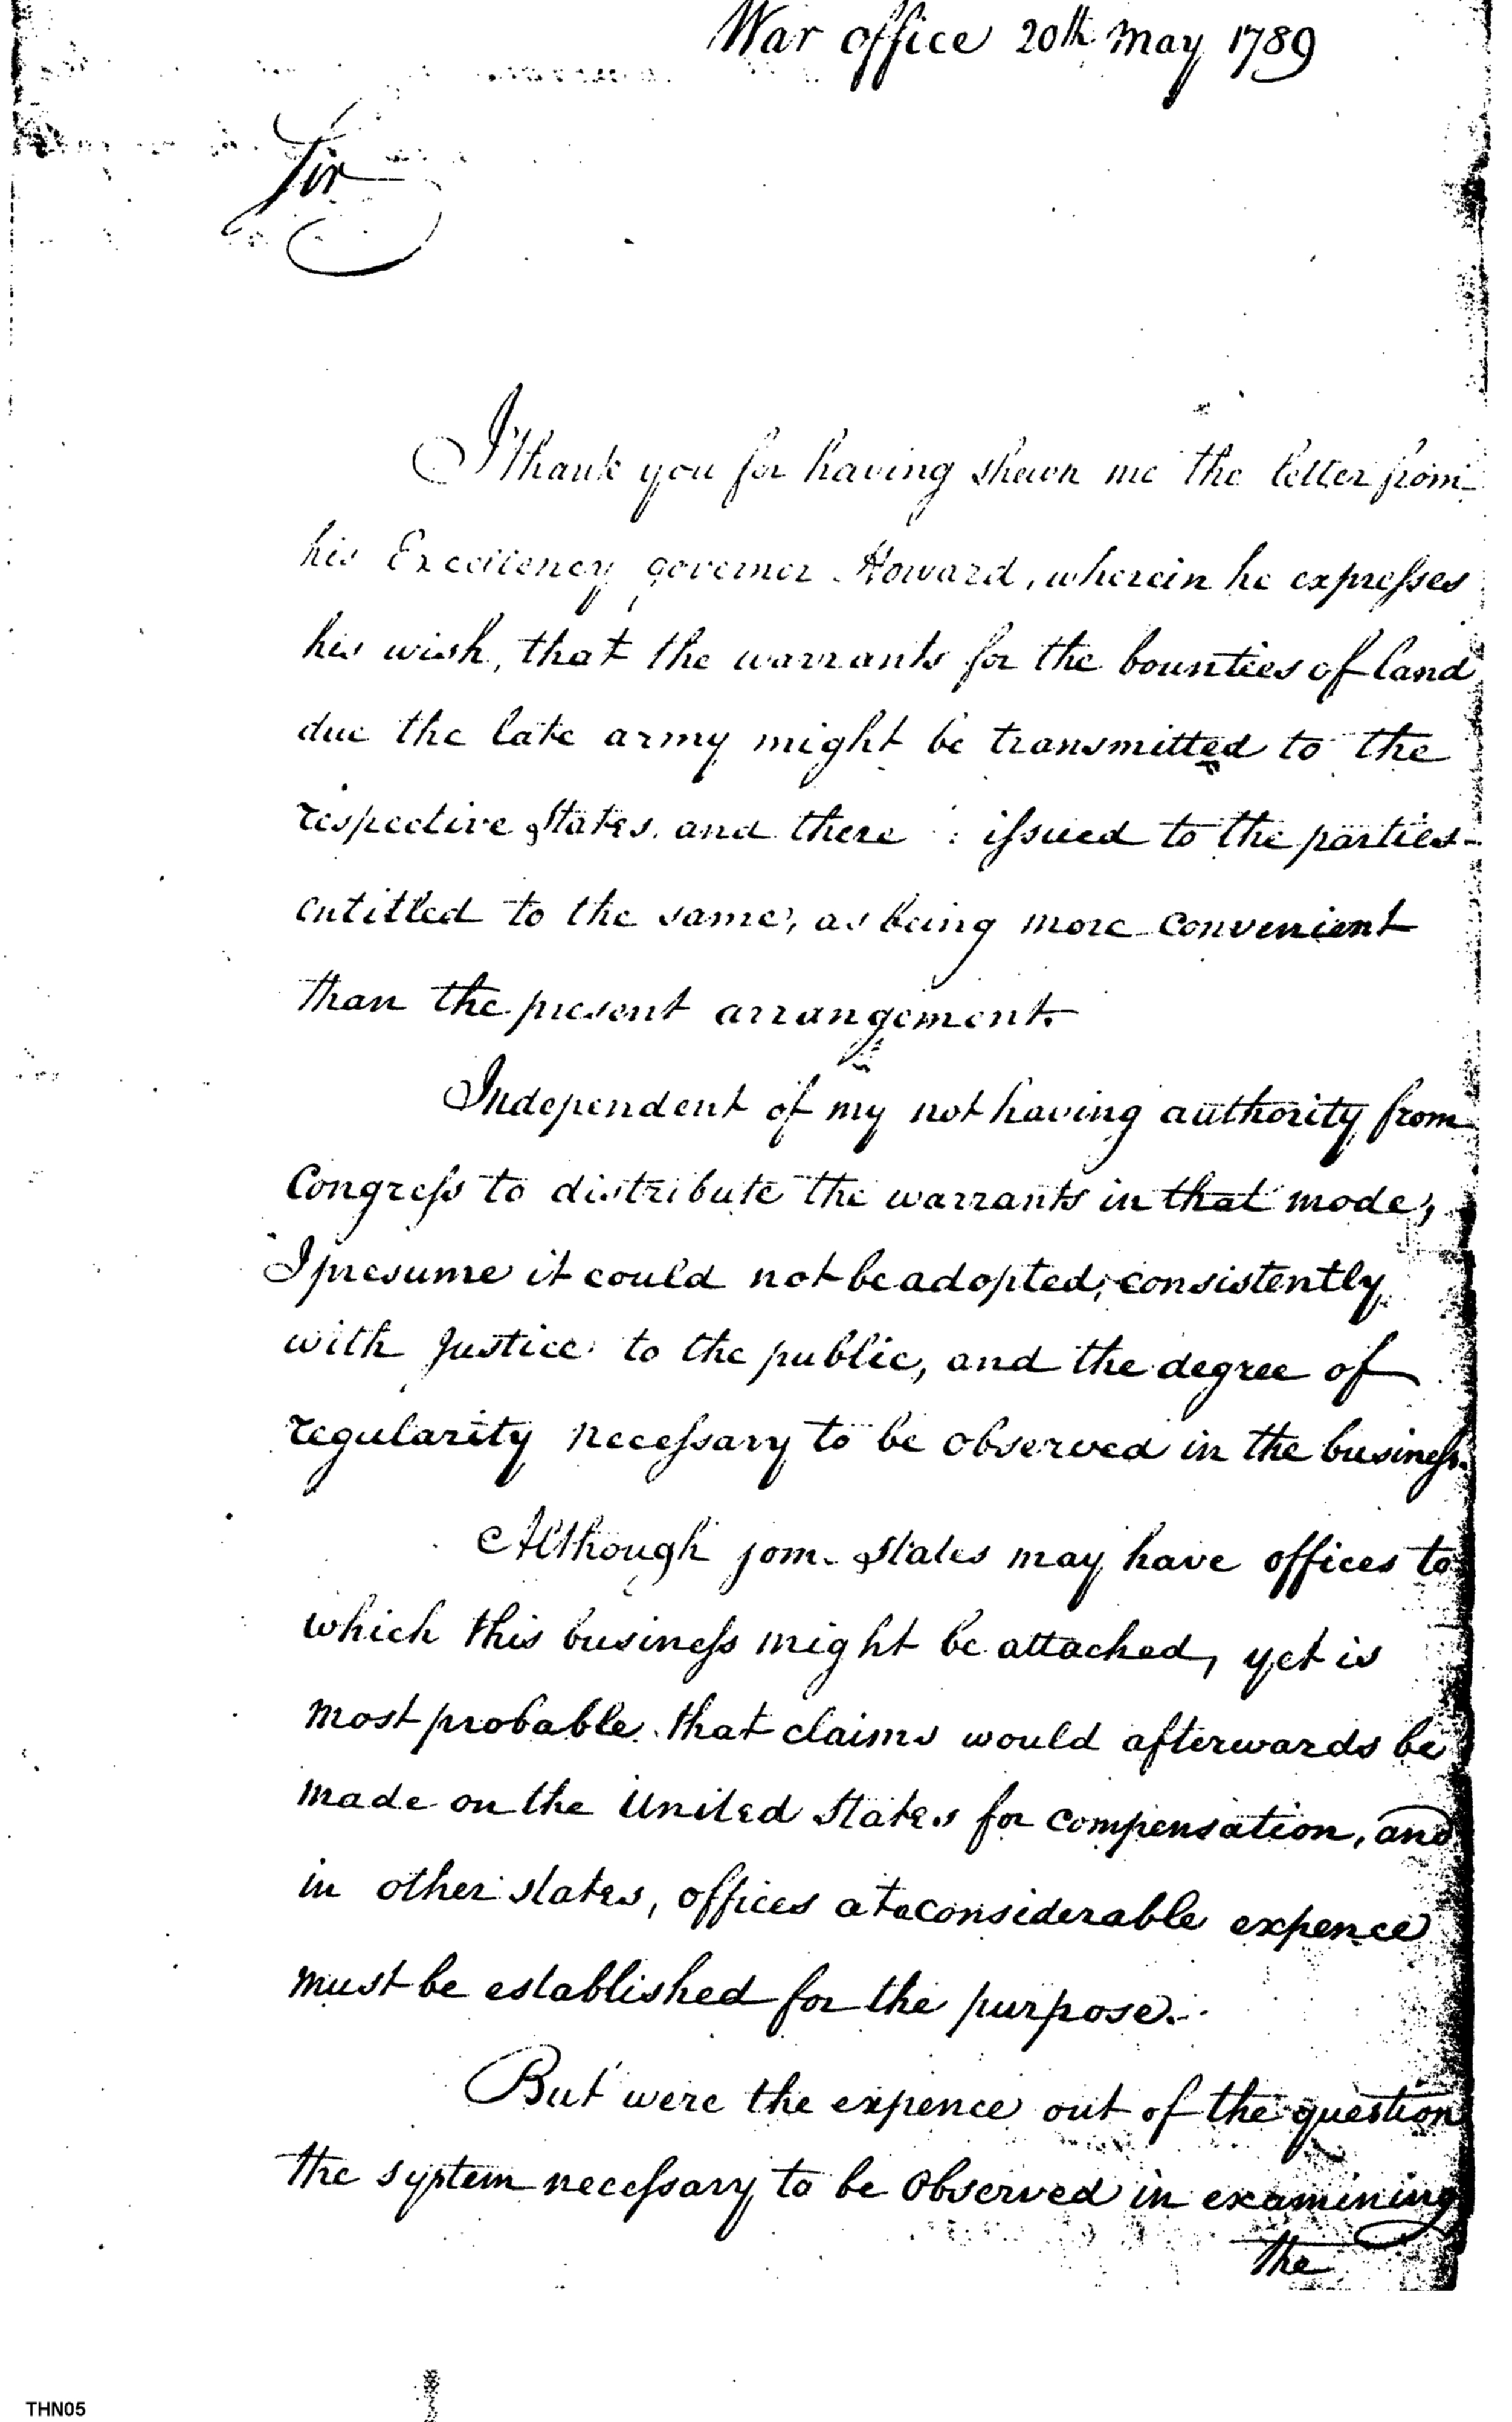 War office 20th May 1789
Sir
I thank you for having shewn me the letter from
his Excellency governor Howard, wherein he expresses
his wish, that the warrants for the bounties of land
due the late army might be transmitted to the
respective States, and there issued to the parties
entitled to the same, as being more convenient
than the present arrangement.
Independent of my not having authority from
Congress to distribute the warrants in that mode,
I presume it could not be adopted, consistently
with Justice to the public, and the degree of
regularity necessary to be observed in the business.
Although some States may have offices to
which this business might be attached, yet is
most probable that claims would afterwards be
made on the United States for compensation, and
in other states, offices at a considerable expence
must be established for the purpose.
But were the expence out of the question
the system necessary to be observed in examining
the
THN05